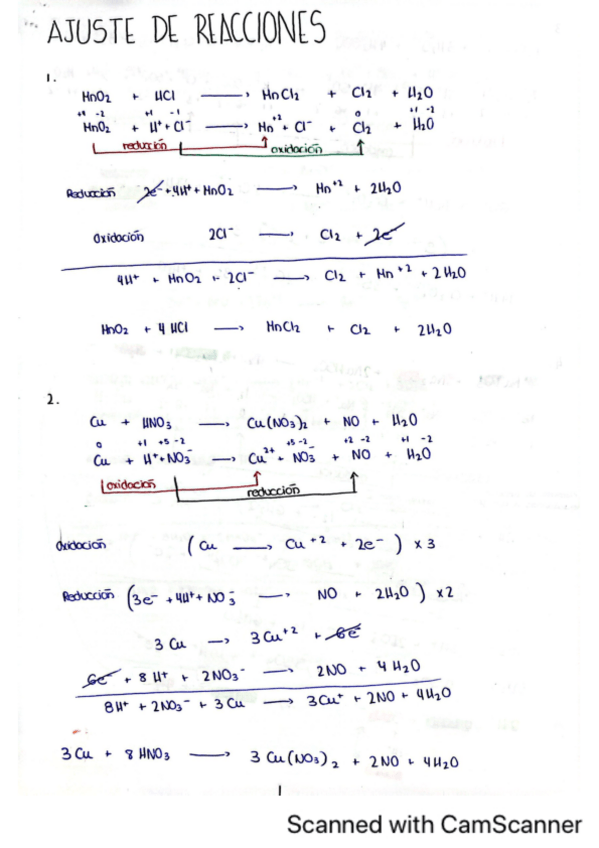 AJUSTE DE REACCIONES
1.
MnO2 + HCl ⟶ MnCl2 + Cl2 + H2O
+4 -2 +1 -1 +2 0 +1 -2
MnO2 + H+ + Cl- ⟶ Mn+2 + Cl- + Cl2 + H2O
reducción oxidación
Reducción 2e- + 4H+ + MnO2 ⟶ Mn+2 + 2H2O
Oxidación 2Cl- ⟶ Cl2 + 2e-
4H+ + MnO2 + 2Cl- ⟶ Cl2 + Mn+2 + 2H2O
MnO2 + 4 HCl ⟶ MnCl2 + Cl2 + 2H2O
2.
Cu + HNO3 ⟶ Cu(NO3)2 + NO + H2O
0 +1 +5 -2 +5 -2 +2 -2 +1 -2
Cu + H+ + NO3- ⟶ Cu2+ + NO3- + NO + H2O
oxidación
reducción
Oxidación (Cu ⟶ Cu+2 + 2e-) x 3
Reducción (3e- + 4H+ + NO3- ⟶ NO + 2H2O) x2
3 Cu ⟶ 3 Cu+2 + 6e-
6e- + 8 H+ + 2NO3- ⟶ 2NO + 4 H2O
8H+ + 2NO3- + 3 Cu ⟶ 3Cu+ + 2NO + 4H2O
3 Cu + 8 HNO3 ⟶ 3 Cu(NO3)2 + 2NO + 4H2O
1
Scanned with CamScanner